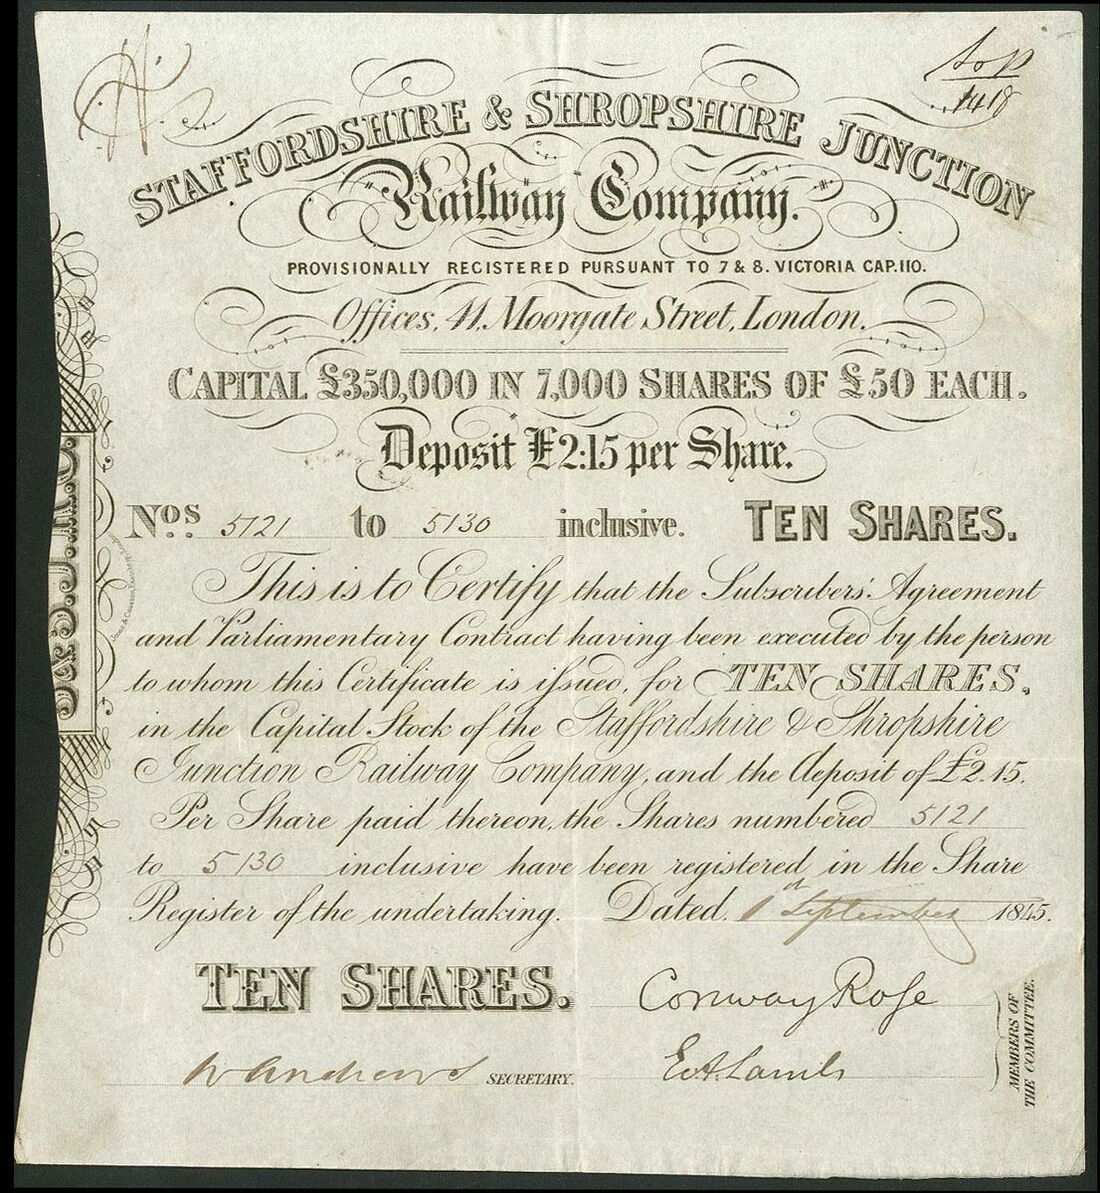 STAFFORDSHIRE & SHROPSHIRE JUNCTION
Railway Company.
PROVISIONALLY REGISTERED PURSUANT TO 7 & 8. VICTORIA CAP. 110.
Offices, 41, Moorgate Street, London.
CAPITAL £350,000 IN 7,000 SHARES OF £50 EACH.
Deposit £2:15 per Share.
Nos. 5121 to 5130 inclusive. TEN SHARES.
This is to Certify that the Subscribers' Agreement
and Parliamentary Contract having been executed by the person
to whom this Certificate is issued, for TEN SHARES,
in the Capital Stock of the Staffordshire & Shropshire
Junction Railway Company, and the deposit of £2.15.
Per Share paid thereon, the Shares numbered 5121
to 5130 inclusive have been registered in the Share
Register of the undertaking. Dated, 1st September 1845.
TEN SHARES.
Conway Rose
W Andrews SECRETARY.
E A Lamb
MEMBERS OF
THE COMMITTEE.